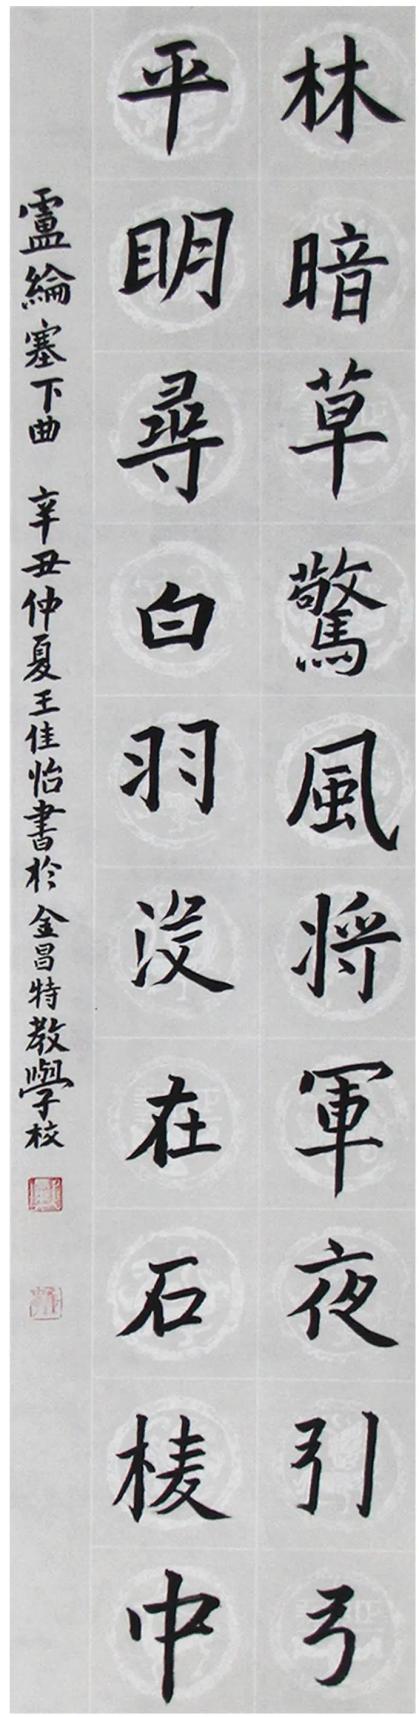 林暗草驚風将軍夜引弓
平明尋白羽没在石棱中
盧綸塞下曲 辛丑仲夏王佳怡書於金昌特教學校